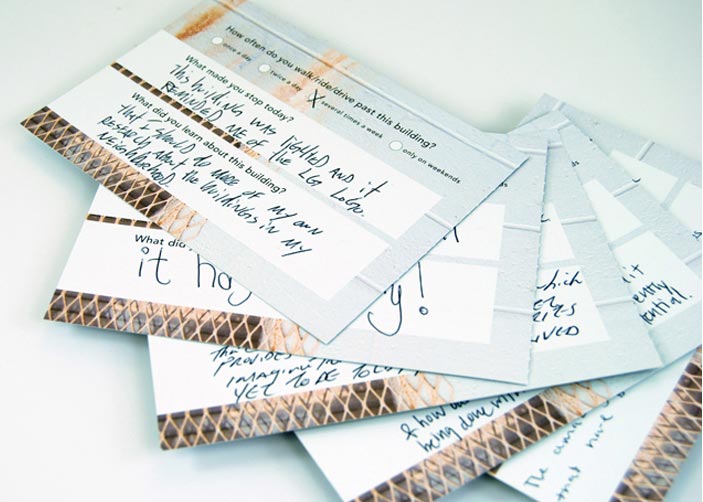 How often do you walk/ride/drive past this building?
once a day twice a day X several times a week only on weekends
What made you stop today?
THIS BUILDING WAS LIGHTED AND IT
REMINDED ME OF THE LG LOGO.
What did you learn about this building?
THAT I SHOULD DO MORE OF MY OWN
RESEARCH ABOUT THE BUILDINGS IN MY
NEIGHBORHOOD
What did
it y!
which
PROVIDES
IMAGINE
YET TO BE
it
entry
& how
being done
The
that